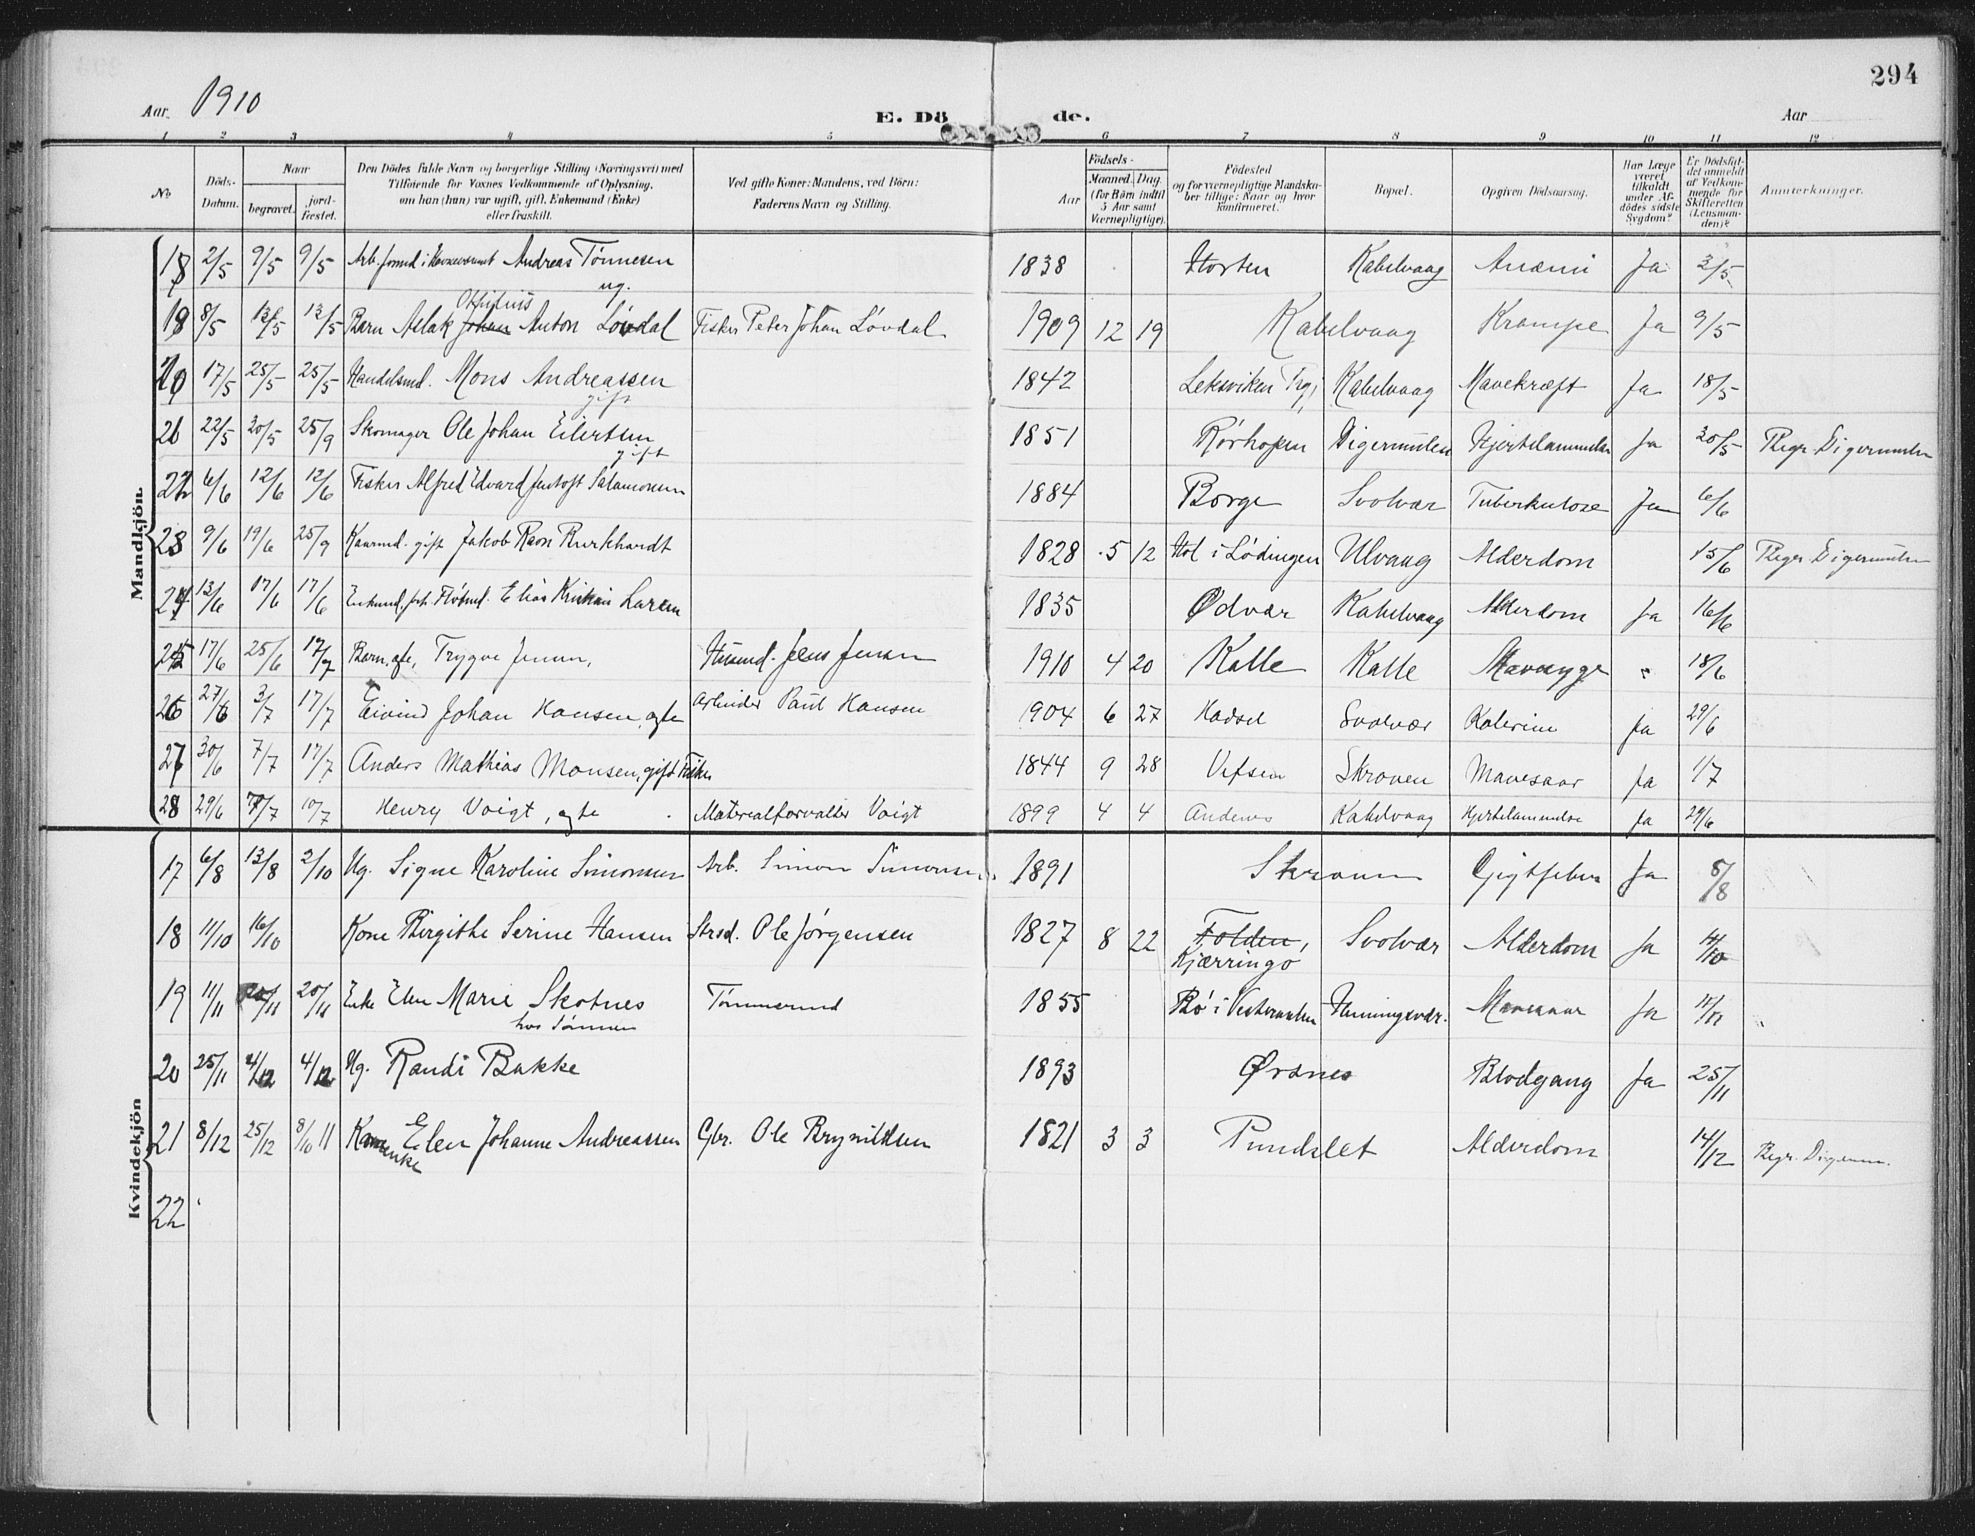 294
Aar 1910
E. Dö de.
Aar
1 2 3 4 5 6 7 8 9 10 11 12
No
Döds-Datum.
Naar
begravet.
jord-fæstet.
Den Dödes fulde Navn og borgerlige Stilling (Næringsvei) med
Tilföiende for Voxnes Vedkommende af Oplysning,
om han (hun) var ugift, gift, Enkemand (Enke)
eller fraskilt.
Ved gifte Koner: Mandens, ved Börn:
Faderens Navn og Stilling.
Födsels-
Aar
Maaned. Dag.
(for Börn indtil
5 Aar samt
Værnepligtige).
Födested
og for værnepligtige Mandska-
ber tillige: Naar og hvor
konfirmeret.
Bopæl.
Opgiven Dödsaarsag.
Har Læge
været
tilkaldt
under Af-
dödes sidste
Sygdom?
Er Dödsfal-
det anmeldt
af Vedkom-
mende for
Skifteretten
(Lensman-
den)?
Anmerkninger.
Mandkjön.
18 2/5 9/5 9/5 Andreas Tönnesen 1838 Horten Kabelvaag Anæmi Ja 3/5
ug.
Othilius
19 8/5 13/5 13/5 Barn Aslak Johan Anton Lövdal Fisker Peter Johan Lövdal 1909 12 19 Kabelvaag Krampe Ja 9/5
20 17/5 25/5 25/5 Handelsmd. Mons Andreassen 1842 Leksviken Kabelvaag Mavekræft Ja 18/5
gift
21 22/5 20/5 25/9 Skomager Ole Johan Eilertsen 1851 Rörhopen Digermulen Hjertelammelse Ja 30/5 Begr. Digermulen
gift
22 6/6 12/6 12/6 Fisker Alfred Edvard Jentoft Salamonsen 1884 Borge Svolvær Tuberkulose Ja 6/6
23 9/6 19/6 25/9 Kaarmd. gift Jakob Baon Burkhardt 1828 5 12 Hol i Lödingen Ulvaag Alderdom 15/6 Begr. Digermulen
24 13/6 17/6 17/6 Enkemd. Elias Larsen 1835 Ødvær Kabelvaag Alderdom Ja 16/6
25 17/6 25/6 17/7 Barn, egte, Trygve Jensen, Husmd. Jens Jensen 1910 4 20 Kalle Kalle Mavesyge " 18/6
26 27/6 3/7 17/7 Eivind Johan Hansen, egte Arbeider Paul Hansen 1904 6 27 Hadsel Svolvær Kolerine ja 29/6
27 30/6 7/7 17/7 Anders Mathias Monsen, gift Fisker 1844 9 28 Vefsen Skroven Mavesaar ja 1/7
28 29/6 7/7 10/7 Henry Voigt, egte Materialforvalter Voigt 1899 4 4 Andenes Kabelvaag Hjertelammelse ja 29/6
Kvindekjön
17 6/8 13/8 2/10 Ug. Signe Karoline Simonsen Arb. Simon Simonsen 1891 Skroven Gigtfeber Ja 8/8
18 11/10 16/10 Kone Birgithe Serine Hansen Strsd. Ole Jörgensen 1827 8 22 Folden, Svolvær Alderdom Ja
Kjærringö
19 11/11 20/11 20/11 Enke Elen Marie Skotnes Tömmermd 1855 Bö i Vesteraalen Henningsvær. Mavesaar Ja 11/11
hos Sönnen
20 25/11 4/12 4/12 Ug. Randi Bakke 1893 Ørsnes Blodgang Ja 25/11
21 8/12 25/12 8/10 11 Elen Johanne Andreassen Gbr. Ole Brynildsen 1821 3 3 Pundslet Alderdom 14/12 Begr. Digerm.
enke
22